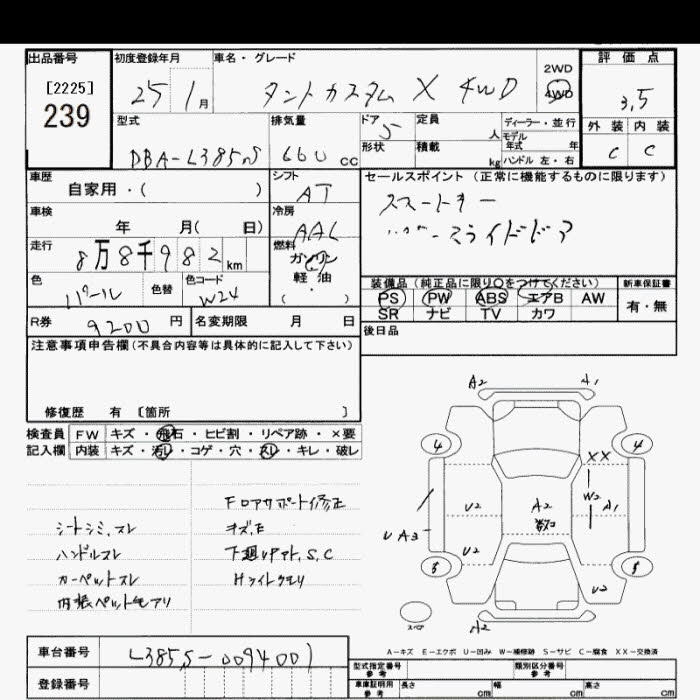 出品番号 初度登録年月 車名・グレード 2WD 評価点
[2225] 25 1月 タントカスタム X 4WD 4WD 3.5
239
型式 排気量 ドア 5 定員 人 ディーラー・並行 外装 内装
DBA-L385S 660 cc 形状 積載 kg モデル年式 年 C C
ハンドル 左・右
車歴 シフト セールスポイント (正常に機能するものに限ります)
自家用・( ) AT スマートキー
車検 冷房 パワースライドドア
年 月( 日) AAC
走行 8万8千982km 燃料 ガソリン
軽油
( ・ )
色 色替 色コード 装備品(純正品に限り○をつけてください) 新車保証書
パール W24 PS PW ABS エアB AW 有・無
SR ナビ TV カワ
R券 9200円 名変期限 月 日 後日品
注意事項申告欄(不具合内容等は具体的に記入して下さい)
修復歴 有 [箇所 ]
検査員 FW キズ・飛石・ヒビ割・リペア跡・×要
記入欄 内装 キズ・汚レ・コゲ・穴・スレ・キレ・破レ
シートシミ、スレ
ハンドルスレ
カーペットスレ
内張ペット毛アリ
Fロアサポート修正
キズ、E
下廻リサビ、S、C
Hライトクモリ
A2 A1
4 4
XX
W2
U2 A2 A1
UA3
U2
5 5
U2
A2
A-キズ E-エクボ U-凹み W-補修跡 S-サビ C-腐食 XX-交換済
車台番号 L385S-0094001
登録番号
型式指定番号 参考 類別区分番号 参考
車庫証明用 参考 長さ cm 幅 cm 高さ cm